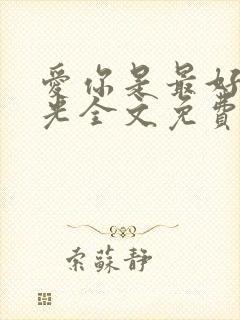 愛你是最好
光全文免費
索蘇靜